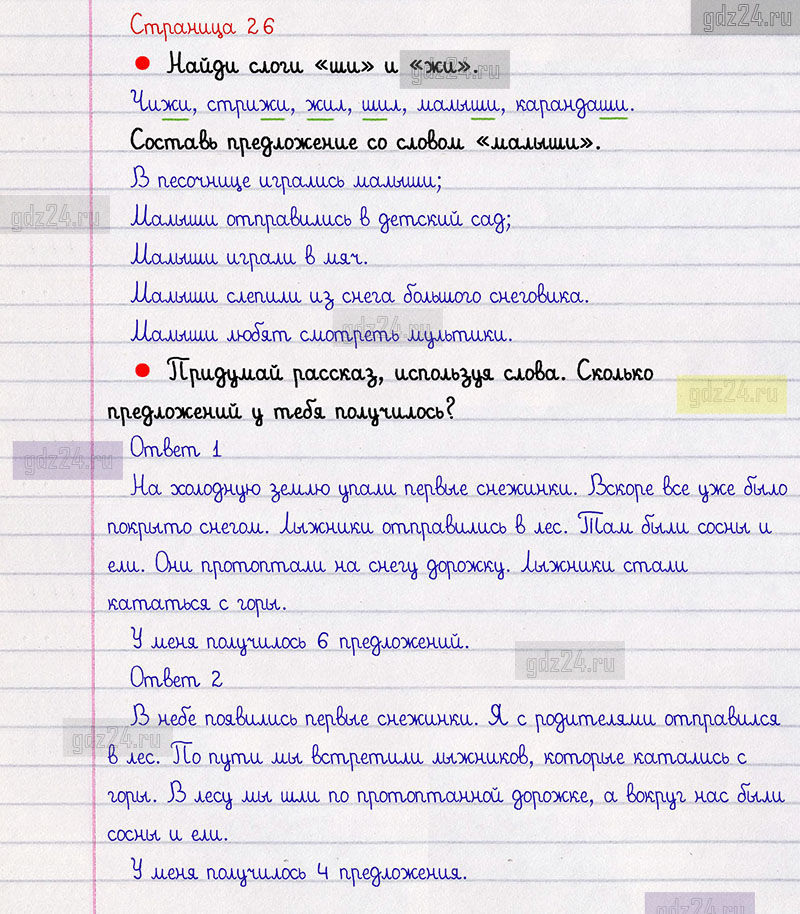 gdz24.ru
Страница 26
Найди слоги «ши» и «жи».
gdz24.ru
Чижи, стрижи, жил, шил, малыши, карандаши.
Составь предложение со словом «малыши».
В песочнице игрались малыши;
gdz24.ru
Малыши отправились в детский сад;
Малыши играли в мяч.
Малыши слепили из снега большого снеговика.
gdz24.ru
Малыши любят смотреть мультики.
Придумай рассказ, используя слова. Сколько
gdz24.ru
предложений у тебя получилось?
Ответ 1
gdz24.ru
На холодную землю упали первые снежинки. Вскоре все уже было
покрыто снегом. Лыжники отправились в лес. Там были сосны и
ели. Они протоптали на снегу дорожку. Лыжники стали
кататься с горы.
У меня получилось 6 предложений.
gdz24.ru
Ответ 2
В небе появились первые снежинки. Я с родителями отправился
gdz24.ru
в лес. По пути мы встретили лыжников, которые катались с
горы. В лесу мы шли по протоптанной дорожке, а вокруг нас были
сосны и ели.
У меня получилось 4 предложения.
gdz24.ru